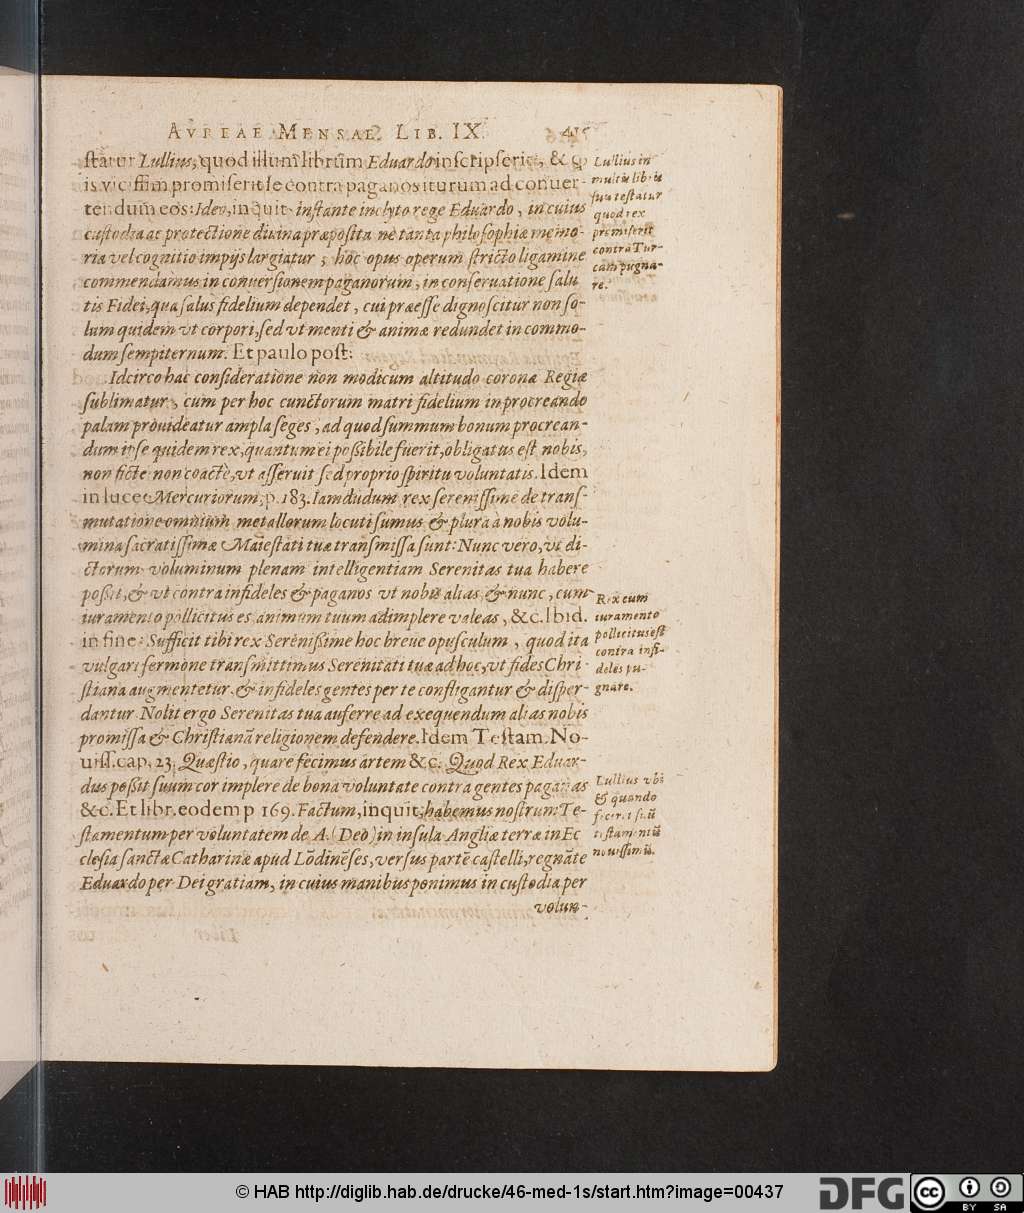 AVREAE MENSAE LIB. IX. 415
ſtatur Lullius, quod illum librum Eduardo inſcripſerit, & q
is viciſſim promiſerit ſe contra paganos iturum ad conuer-
tendum eos: Ideo, inquit, inſtante inclyto rege Eduardo, in cuius
cuſtodia ac protectione diuina præpoſita ne tanta philoſophiæ memo-
ria vel cognitio impijs largiatur, hoc opus operum ſtricto ligamine
commendamus in conuerſionem paganorum, in conſeruatione ſalu
tis Fidei, qua ſalus fidelium dependet, cui præeſſe dignoſcitur non ſo-
lum quidem vt corpori, ſed vt menti & animæ redundet in commo-
dum ſempiternum. Et paulo poſt:
Idcirco hac conſideratione non modicum altitudo coronæ Regiæ
ſublimatur, cum per hoc cunctorum matri fidelium in procreando
palam prouideatur ampla ſeges, ad quod ſummum bonum procrean-
dum ipſe quidem rex, quantum ei poßibile fuerit, obligatus eſt nobis,
non ficte non coactè, vt aſſeruit ſed proprio ſpiritu voluntatis. Idem
in luce Mercuriorum, p. 183. Iamdudum rex ſereniſſime de tranſ-
mutatione omnium metallorum locuti ſumus & plura à nobis volu-
mina ſacratiſſimæ Maieſtati tuæ tranſmiſſa ſunt: Nunc vero, vt di-
ctorum voluminum plenam intelligentiam Serenitas tua habere
poſſit, & vt contra infideles & paganos vt nobis alias & nunc, cum
iuramento pollicitus es animum tuum adimplere valeas, &c. Ibid.
in fine: Sufficit tibi rex Sereniſſime hoc breue opuſculum, quod ita
vulgari ſermone tranſmittimus Serenitati tuæ ad hoc, vt fides Chri-
ſtiana augmentetur & infideles gentes per te confligantur & diſper-
dantur Nolit ergo Serenitas tua auferre ad exequendum alias nobis
promiſſa & Chriſtianã religionem defendere. Idem Teſtam. No-
uiſſ. cap. 23. Quæſtio, quare fecimus artem &c. Quod Rex Eduar-
dus poſſit ſuum cor implere de bona voluntate contra gentes paganas
&c. Et libr. eodem p 169. Factum, inquit, habemus noſtrum Te-
ſtamentum per voluntatem de A. (Deo) in inſula Angliæ terræ in Ec
cleſia ſanctæ Catharinæ apud Lõdinẽſes, verſus partẽ caſtelli, regnãte
Eduardo per Dei gratiam, in cuius manibus ponimus in cuſtodia per
volun-
Lullius in
multis libris
ſuis teſtatur
quod rex
promiſerit
contra Tur-
cam pugna-
re.
Rex cum
iuramento
pollicitus eſt
contra infi-
deles pu-
gnare.
Lullius vbi
& quando
fecerit ſuũ
teſtamentũ
nouiſſimũ.
© HAB http://diglib.hab.de/drucke/46-med-1s/start.htm?image=00437
DFG
cc
BY SA